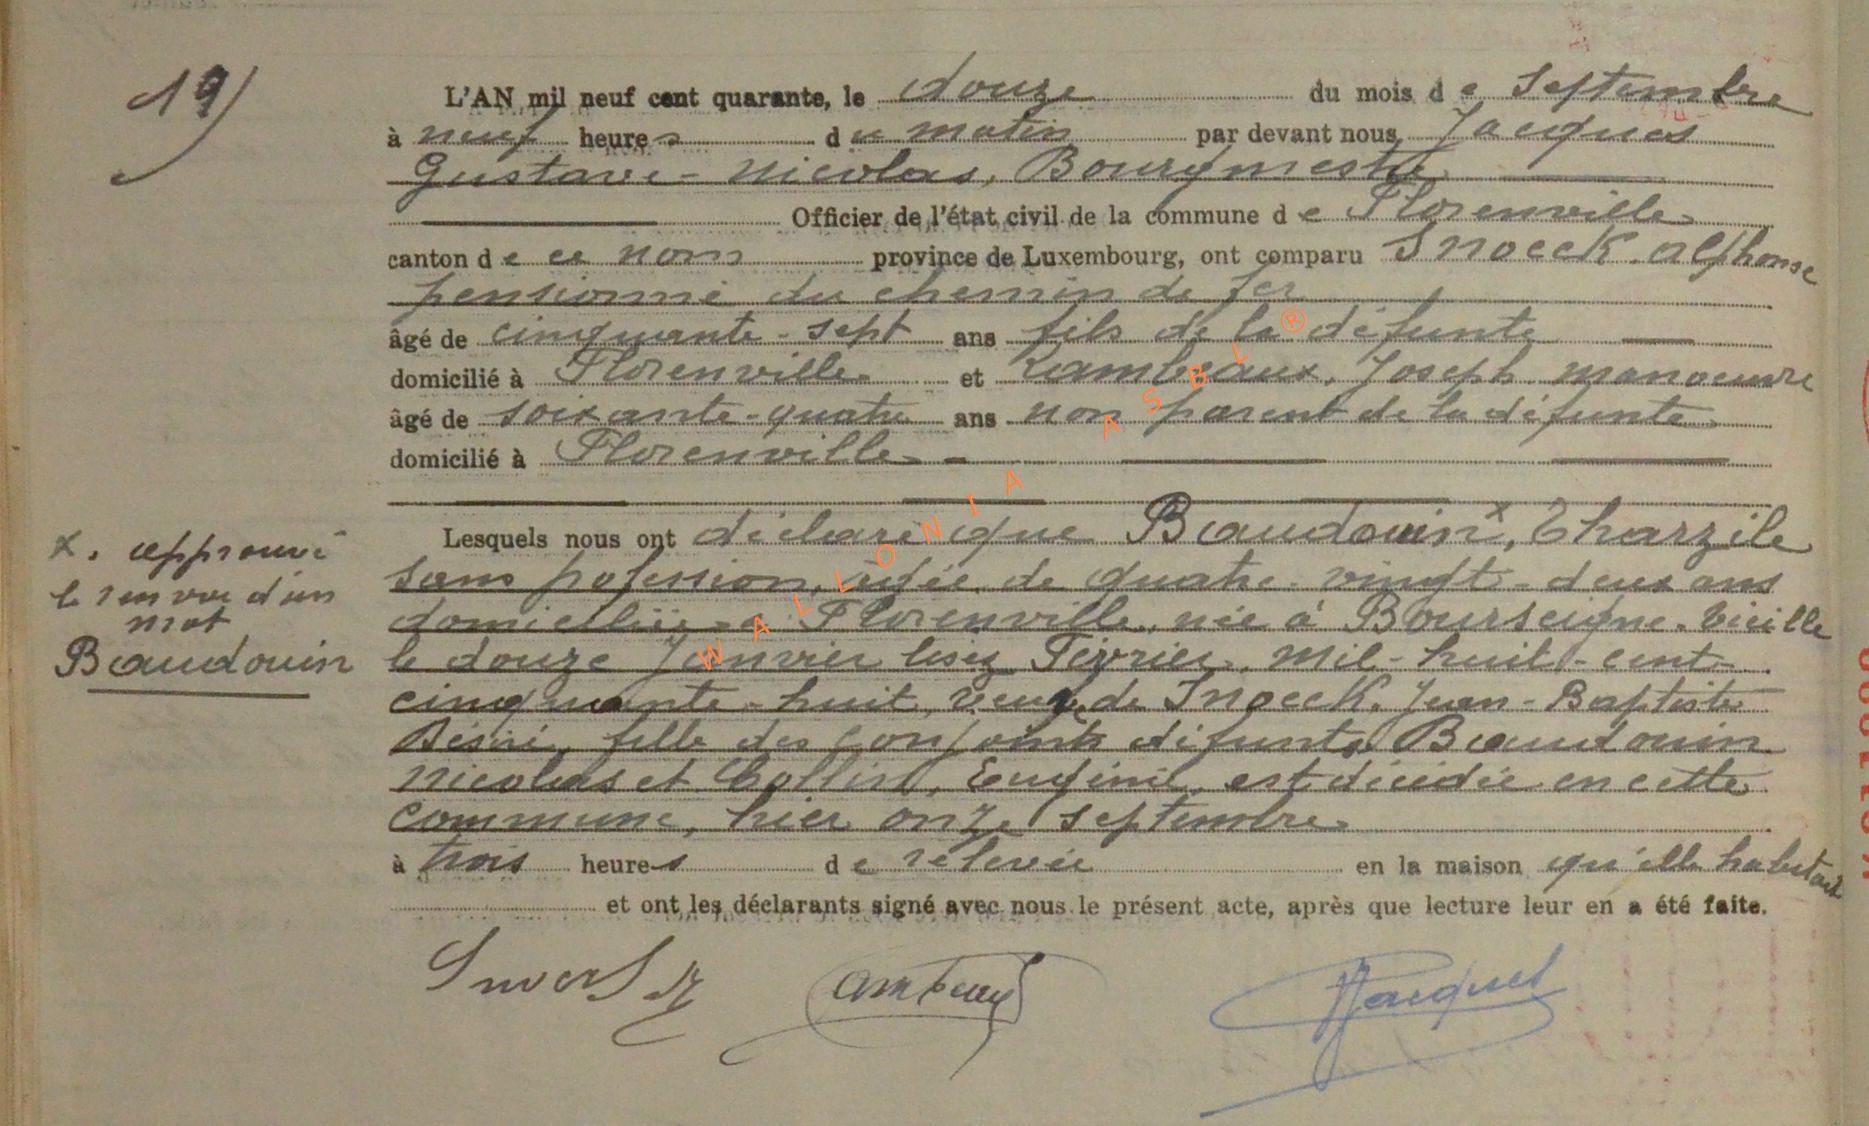 19)
L'AN mil neuf cent quarante, le douze du mois de Septembre
à neuf heures du matin par devant nous Jacques
Gustave-Nicolas, Bourgmestre
Officier de l'état civil de la commune de Florenville
canton de ce nom province de Luxembourg, ont comparu Snoeck Alphonse
pensionné du chemin de fer
âgé de cinquante-sept ans fils de la défunte
domicilié à Florenville et Lambeaux, Joseph manoeuvre
âgé de soixante-quatre ans non parent de la défunte
domicilié à Florenville
Lesquels nous ont déclaré que Beaudouin x, Tharzile
sans profession, agée de quatre-vingt-deux ans
domiciliée à Florenville, née à Bourseigne-Vieille
le douze Janvier lisez Février, mil-huit-cent-
cinquante-huit, veuve de Snoeck, Jean-Baptiste
Désiré, fille des conjoints défunts Beaudouin
Nicolas et Collin, Eugénie, est décédée en cette
commune, hier onze septembre
à trois heures de relevée en la maison qu'elle habitait
et ont les déclarants signé avec nous le présent acte, après que lecture leur en a été faite.
x. approuvé
le renvoi d'un
mot
Beaudouin
Lambeaux
Jacques
WALLONIA ASBL ®